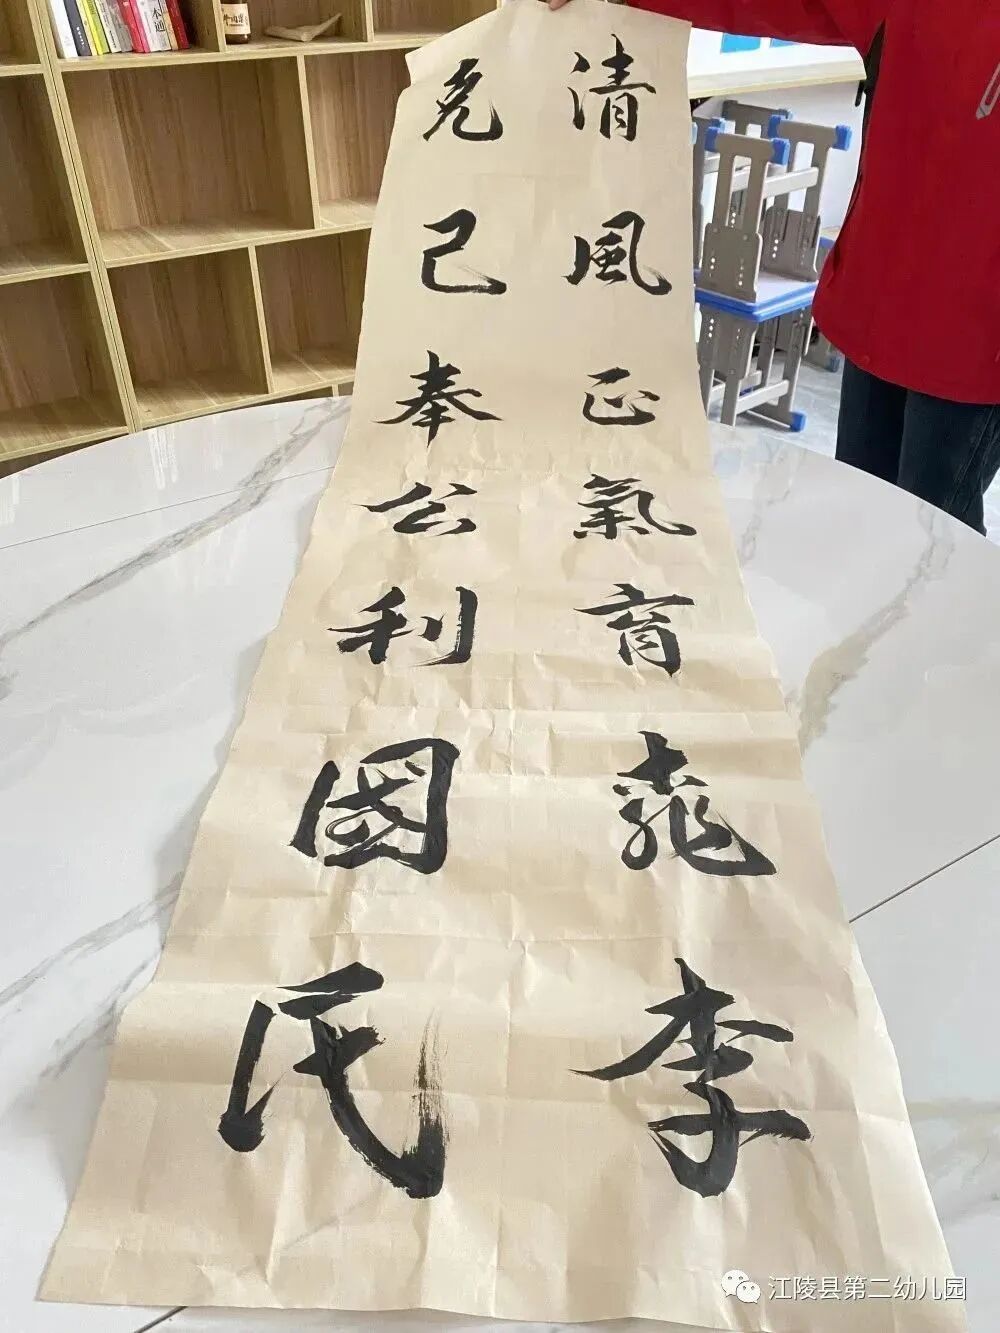 清風正氣育桃李
克己奉公利國民
本通
江陵县第二幼儿园